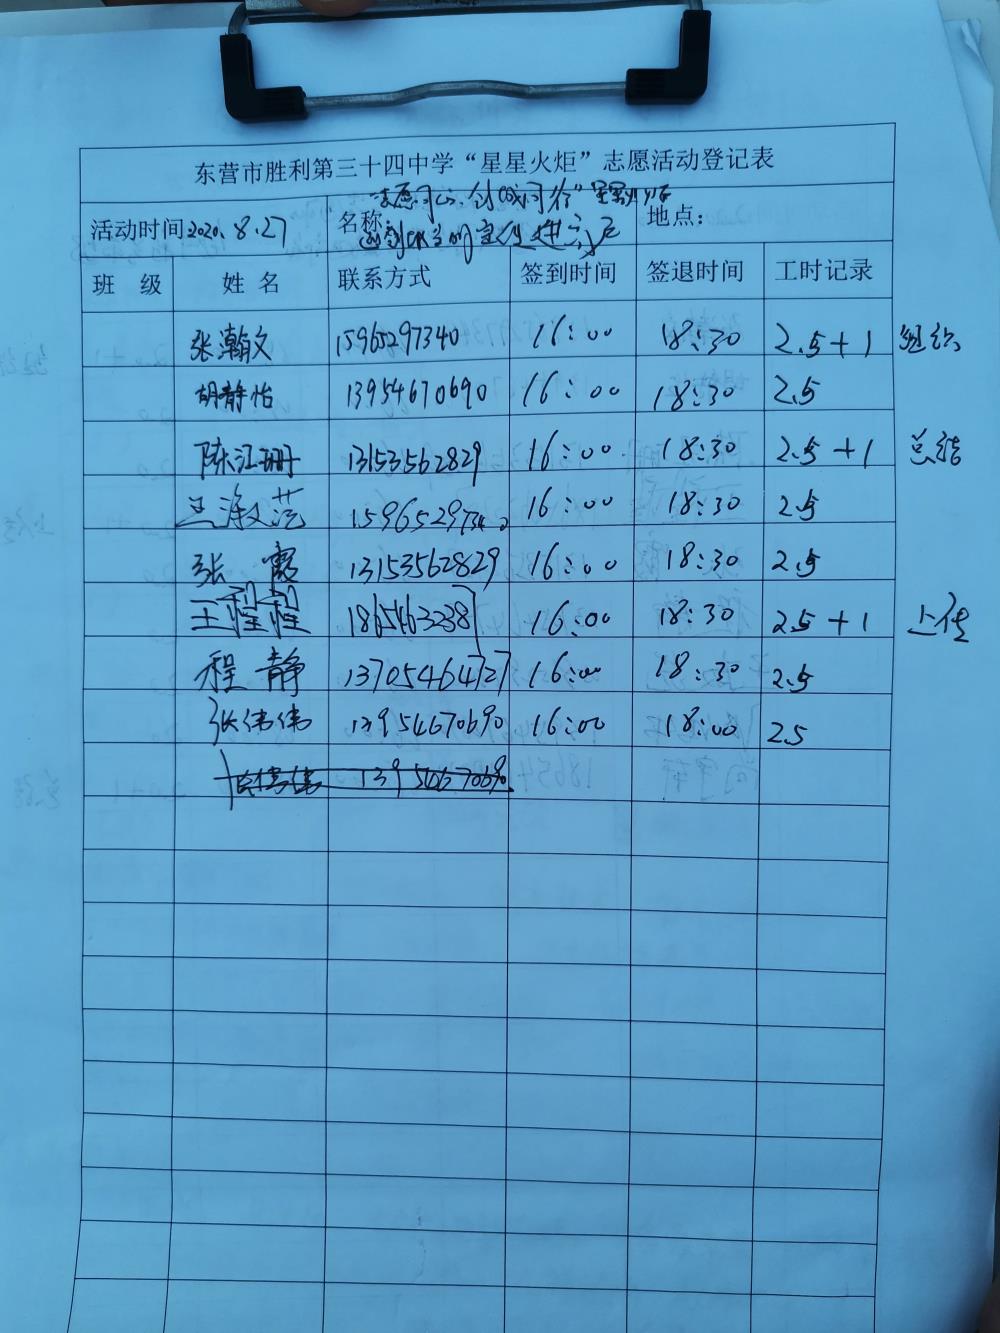 东营市胜利第三十四中学“星星火炬”志愿活动登记表
活动时间2020.8.27 名称: 志愿同心、创城同行” 地点:
班 级 姓 名 联系方式 签到时间 签退时间 工时记录
张瀚文 15965297340 16:00 18:30 2.5+1 组织
胡静怡 13954670690 16:00 18:30 2.5
陈江珊 13153562829 16:00 18:30 2.5+1 总结
15965297340 16:00 18:30 2.5
张 霞 13153562829 16:00 18:30 2.5
王程程 18654632387 16:00 18:30 2.5+1 上传
程 静 13705464727 16:00 18:30 2.5
张伟伟 13954670690 16:00 18:00 2.5